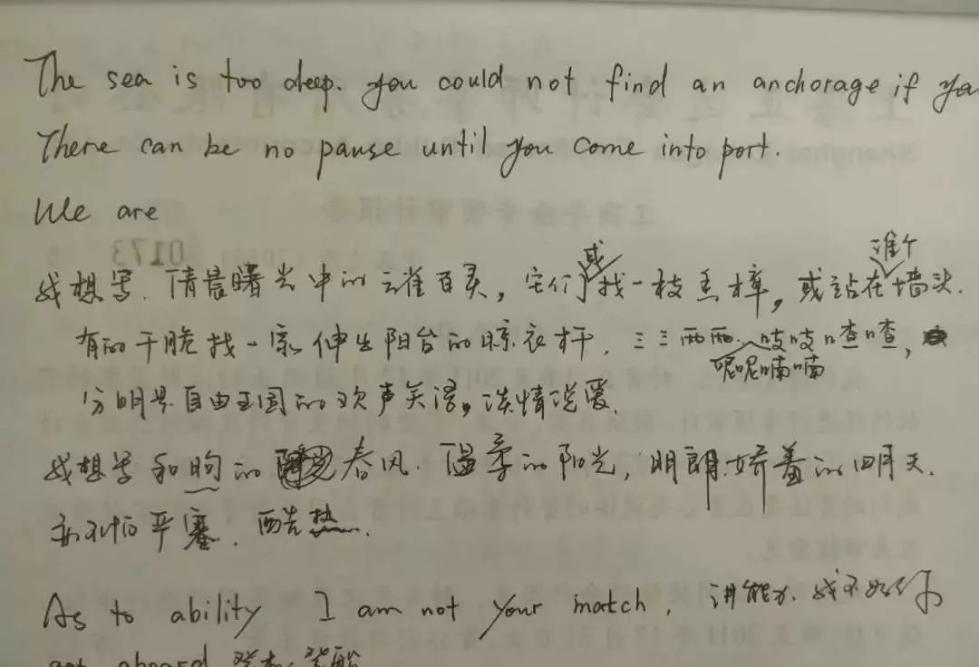 The sea is too deep. you could not find an anchorage if you
There can be no pause until you come into port.
We are
0173
我想写. 清晨曙光中的云雀百灵, 它们或找一枝香樟, 或站在谁个墙头.
有的干脆找一家伸出阳台的晾衣杆. 三三两两. 呢呢喃喃 吱吱喳喳,
分明是自由王国的欢声笑语, 谈情说爱.
我想写和煦的春风. 温柔的阳光, 明朗娇羞的明天.
严寒. 酷热.
As to ability I am not your match. 讲能力. 我不如你
get aboard